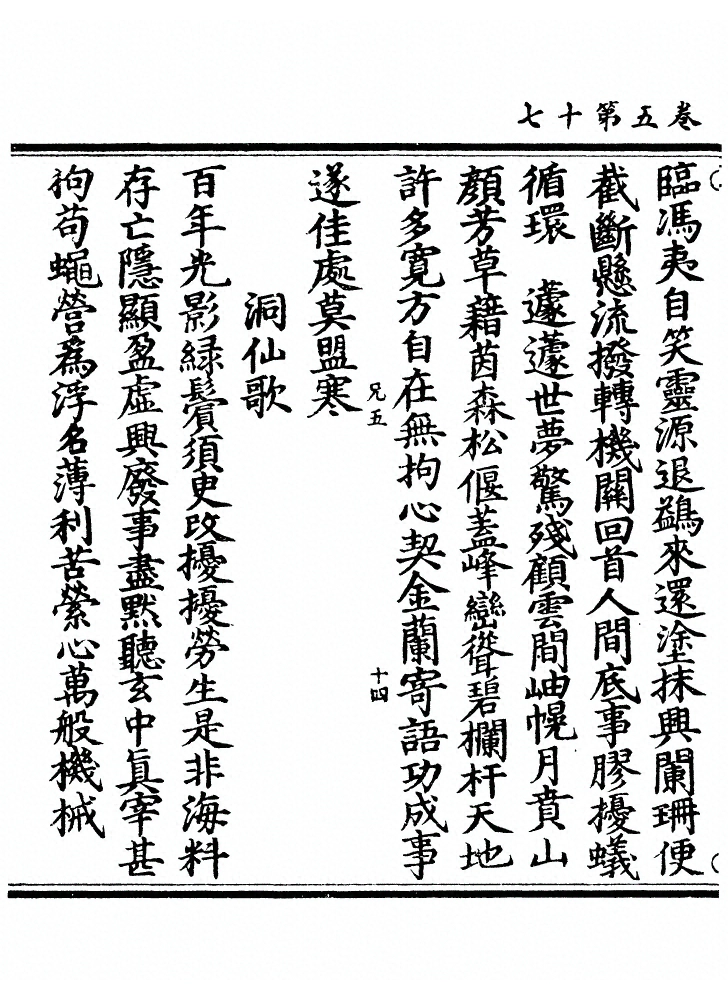 卷五第十七
臨馮夷自笑靈源退鷁來還塗抹興闌珊便
截斷懸流撥轉機關回首人間底事膠擾蟻
循環　蘧蘧世夢驚殘顧雲間岫幌月賁山
顏芳草藉茵森松偃蓋峰巒聳碧欄杆天地
許多寬方自在無拘心契金蘭寄語功成事
兄五
十四
遂佳處莫盟寒
洞仙歌
百年光影綠鬢須臾改擾擾勞生是非海料
存亡隱顯盈虛興廢事盡默聽玄中眞宰甚
狗苟蠅營爲浮名薄利苦縈心萬般機械